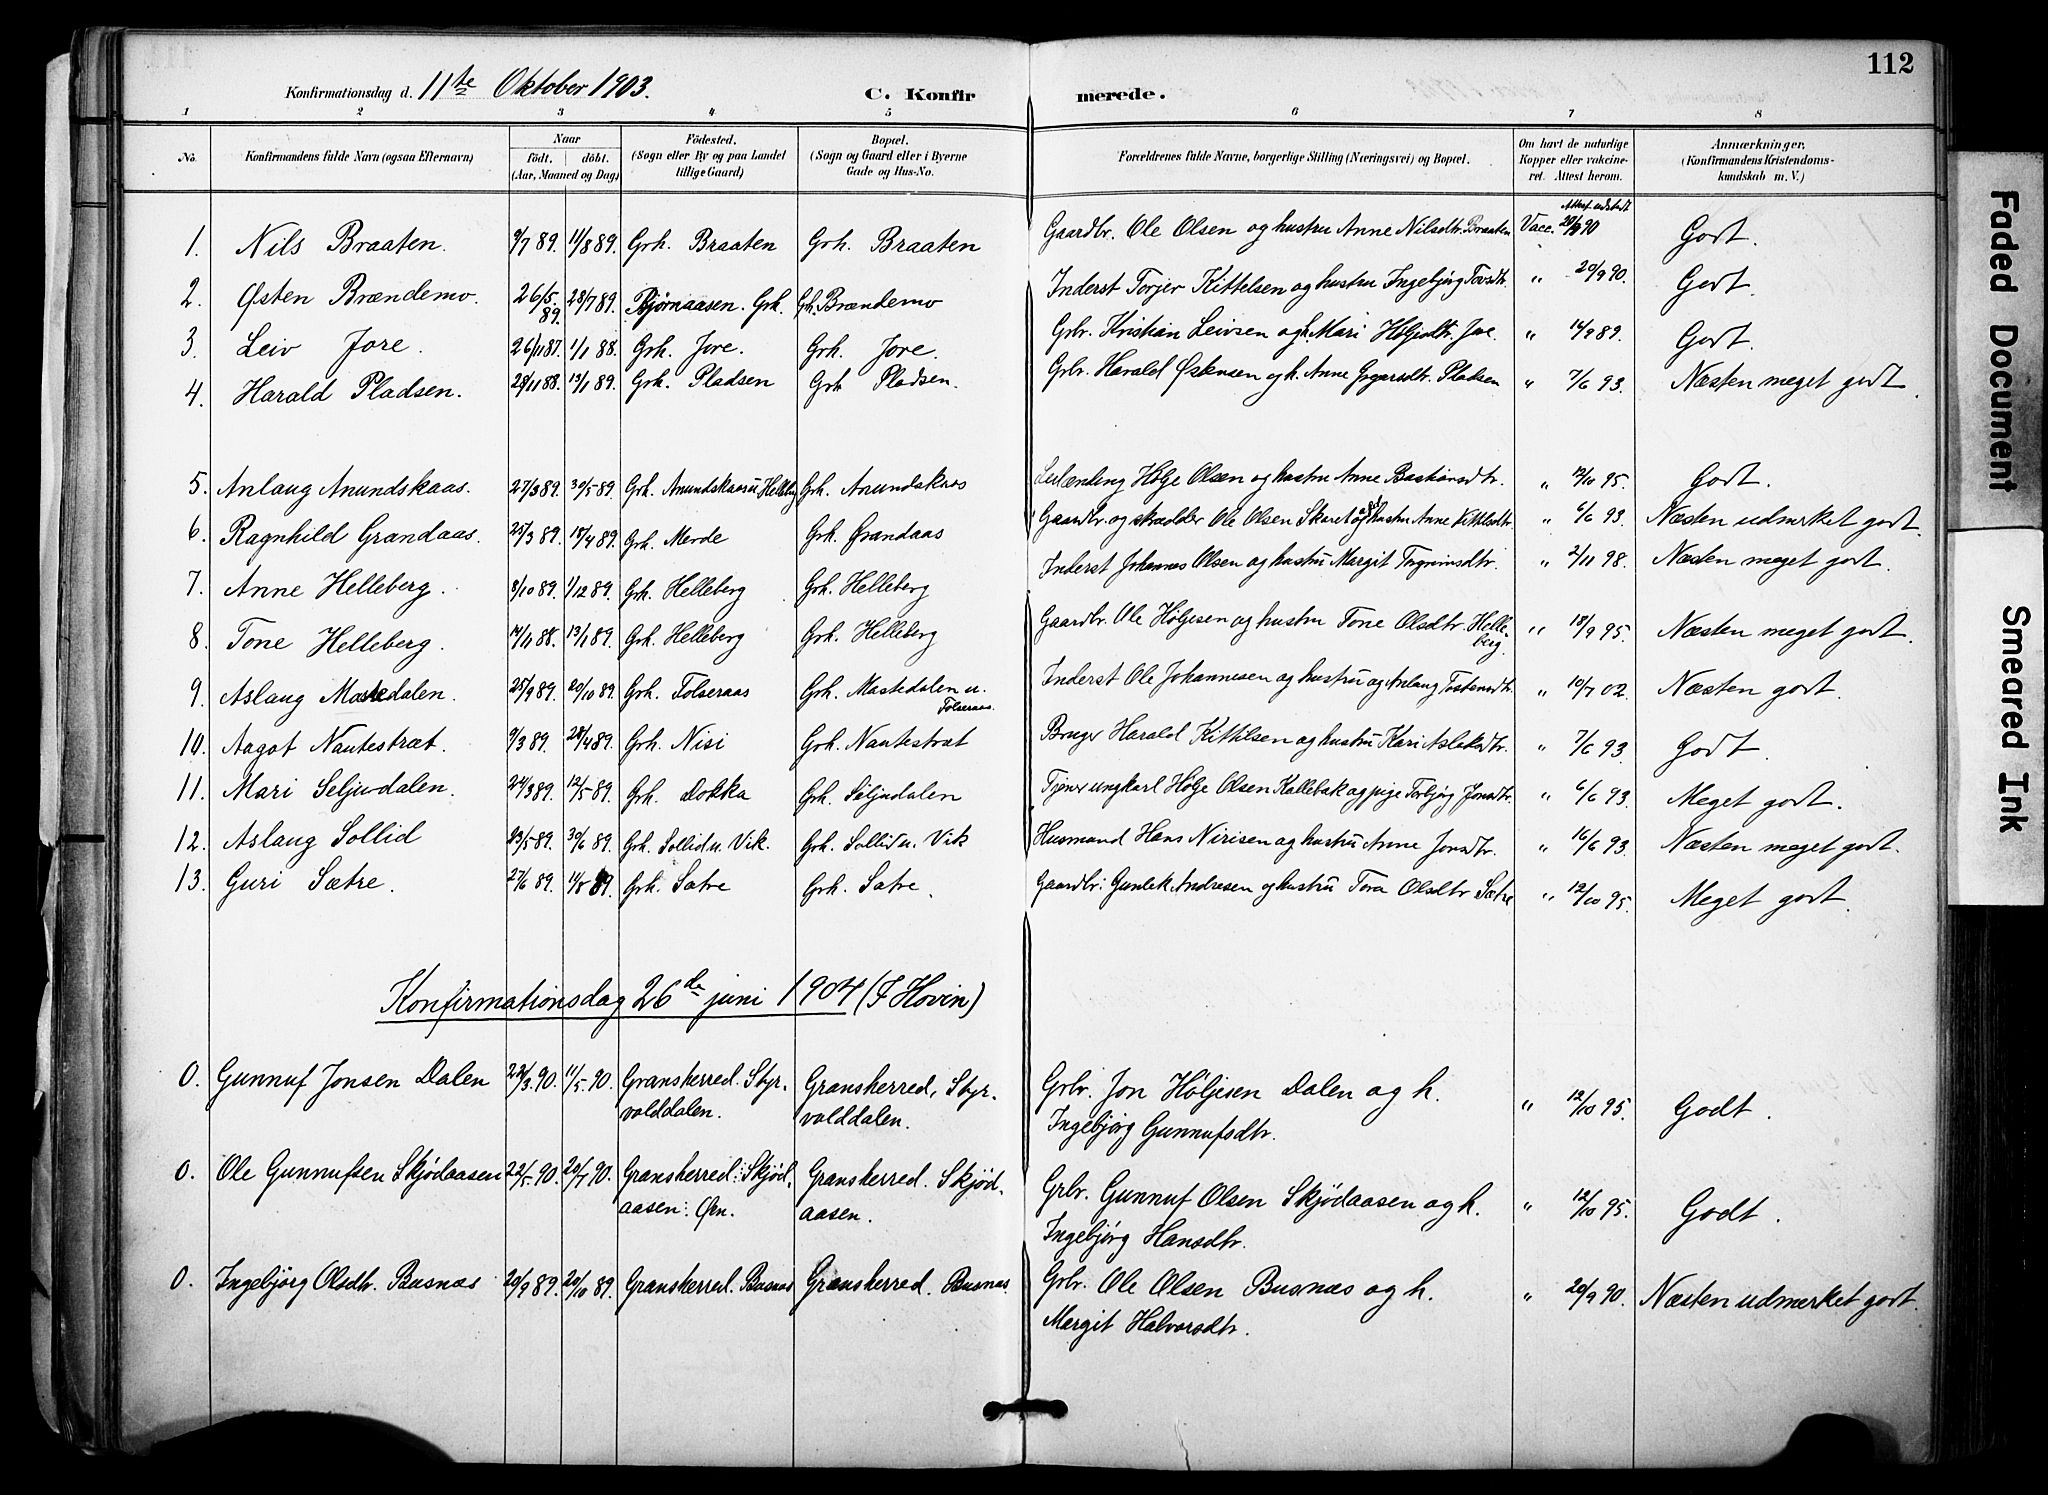 112
Konfirmationsdag d. 11te Oktober 1903. C. Konfirmerede.
1 2 3 4 5 6 7 8
No. Konfirmandens fulde Navn (ogsaa Efternavn) Naar født. døbt. (Aar, Maaned og Dag) Födested. (Sogn eller By og paa Landet tillige Gaard) Bopæl. (Sogn og Gaard eller i Byerne Gade og Hus-No. Forældrenes fulde Navne, borgerlige Stilling (Næringsvei) og Bopæl. Om havt de naturlige Kopper eller vakcineret. Attest herom. Anmærkninger, (Konfirmandens Kristendomskundskab m. V.)
Attest udstedt
1. Nils Braaten. 9/7 89. 11/8 89. Grh. Braaten Grh. Braaten Gaardbr. Ole Olsen og hustru Anne Nilsdtr. Braaten Vacc. 20/9 90 Godt.
2. Østen Brændemo. 26/5 89. 28/7 89. Bjørnaasen. Grh. Grh. Brændemo Inderst Torjer Kittelsen og hustru Ingebjørg Tovsdtr. " 20/9 90. Godt.
3. Leiv Jore. 26/11 87. 1/1 88. Grh. Jore. Grh. Jore. Grbr. Kristian Leivsen og h. Mari Høljesdtr. Jore. " 14/9 89. Godt.
4. Harald Pladsen. 28/11 88. 13/1 89. Grh. Pladsen Grh Pladsen. Grbr. Harald Østensen og h. Anne Gregarsdtr. Pladsen " 7/6 93. Næsten meget godt
5. Anlaug Anundskaas. 27/3 89. 30/5 89. Grh. Anundskaas u. Helleberg Grh. Anundskaas Leilænding Hølje Olsen og hustru Anne Bastiansdtr. " 12/10 95. Godt.
6. Ragnhild Grandaas. 25/3 89. 18/4 89. Grh. Merde Grh. Grandaas Gaardbr. og skrædder Ole Olsen Skaret og hustru Anne Kittilsdtr. " 6/6 93. Næsten udmerket godt.
7. Anne Helleberg. 8/10 89. 1/12 89. Grh. Helleberg Grh. Helleberg Inderst Johannes Olsen og hustru Margit Tngrimsdtr. " 2/11 98. Næsten meget godt.
8. Tone Helleberg. 14/11 88. 13/1 89. Grh. Helleberg Grh. Helleberg Gaardbr. Ole Høljesen og hustru Tone Olsdtr. Helleberg. " 18/9 95. Næsten meget godt.
9. Aslaug Mastedalen. 25/9 89. 20/10 89. Grh. Folseraas Grh. Mastedalen u. Folseraas. Inderst Ole Johannesen og hustru og Anlaug Tostensdtr. " 10/7 02. Næsten godt.
10. Aagot Nautestræt. 9/3 89. 28/4 89. Grh. Nisi Grh. Nautestræt Bruger Harald Kittilsen og hustru Kari Aslaksdtr. " 7/6 93 Godt.
11. Mari Seljudalen. 24/3 89. 12/5 89. Grh. Dokka Grh. Seljudalen Tjener ungkarl Hølje Olsen Kallebak og pige Torbjørg Jonsdtr. " 6/6 93. Meget godt.
12. Aslaug Sollid 23/5 89. 30/6 89. Grh. Sollid u. Vik. Grh. Sollid u. Vik Husmand Hans Nirisen og hustru Anne Jonsdtr. " 16/6 93. Næsten meget godt.
13. Guri Sætre. 27/6 89. 11/8 89. Grh. Sætre Grh. Sætre. Gaardbr: Gunlek Andresen og hustru Tora Olsdtr Sætre " 12/10 95. Meget godt.
Konfirmationsdag 26de juni 1904 (I Hovin)
0. Gunnuf Jonsen Dalen 22/3 90. 11/5 90. Gransherred. Styrvolddalen. Gransherred, Styrvolddalen. Grbr. Jon Høljesen Dalen og h. Ingebjørg Gunnufsdtr. " 12/10 95. Godt.
0. Ole Gunnufsen Skjødaasen 22/5 90. 20/7 90. Gransherred: Skjødaasen: Øvr. Gransherred. Skjødaasen. Grbr. Gunnuf Olsen Skjødaasen og h. Ingebjørg Hansdtr. " 12/10 95. Godt.
0. Ingebjørg Olsdtr. Busnæs 20/9 89. 20/10 89. Gransherred. Busnæs Gransherred. Busnæs. Grbr. Ole Olsen Busnæs og h. Margit Halvorsdtr. " 20/9 90. Næsten udmerket godt.
Faded Document
Smeared Ink